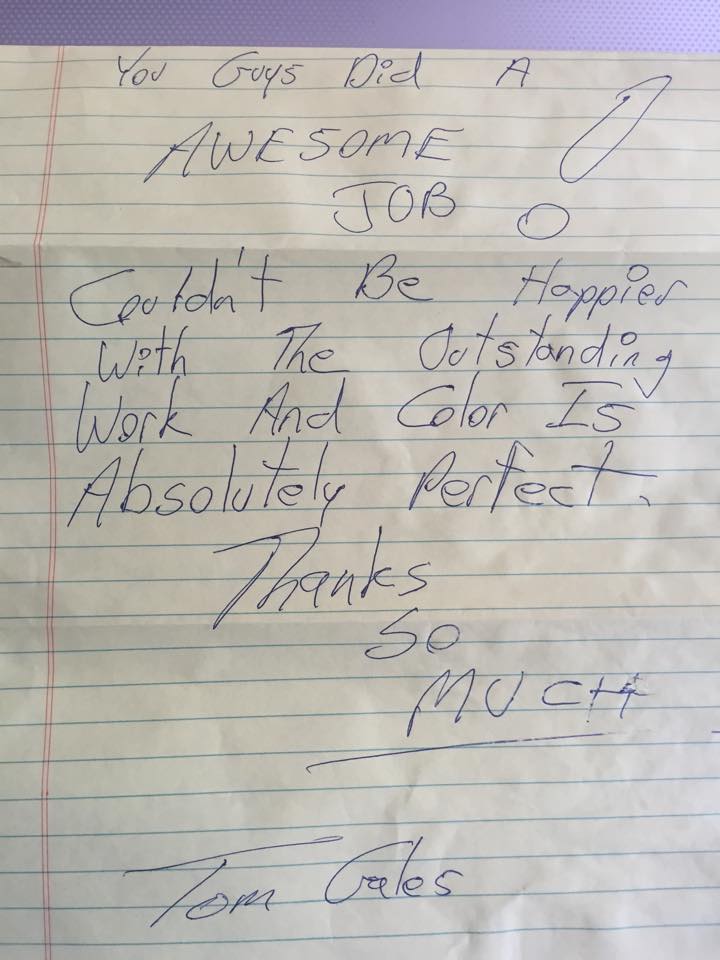 You Guys Did A
AWESOME
JOB!
Couldn't Be Happier
With The Outstanding
Work And Color Is
Absolutely Perfect.
Thanks
So
MUCH
Tom Gales